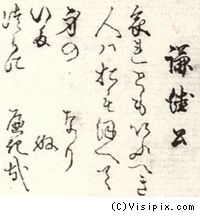 謙徳公
哀れともいふへき
人ハおもほえて
身の
いた
つらに
なり
ぬ
へき哉
(C)Visipix.com